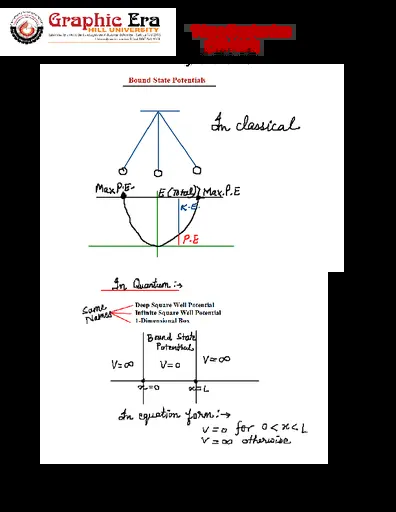 Graphic Era
HILL UNIVERSITY
Bound State Potentials
In classical
Max P.E. E (Total) Max. P.E
K.E.
P.E
In Quantum :→
Same
Names
Deep Square Well Potential
Infinite Square Well Potential
1-Dimensional Box
Bound State
Potential
V=∞ V=0 V=∞
x=0 x=L
In equation form :→
V=0 for 0<x<L
V=∞ otherwise